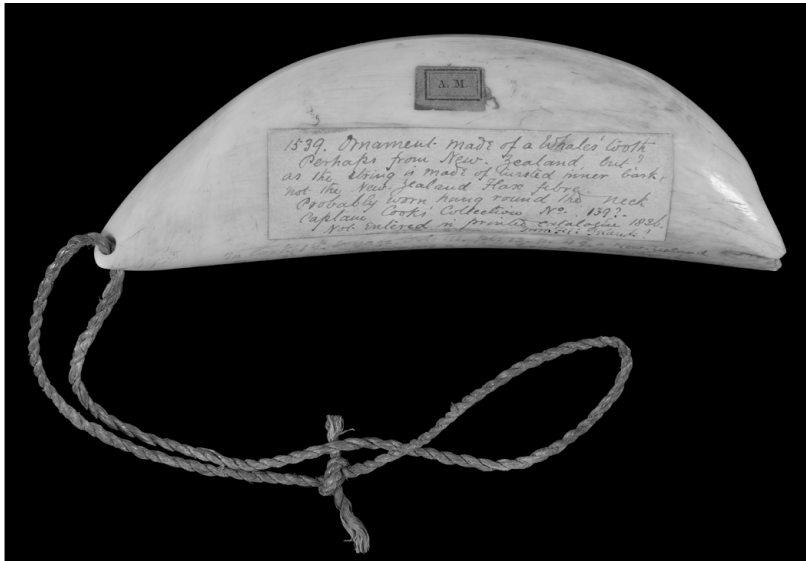 A. M.
1539. Ornament made of a Whale's tooth
Perhaps from New. Zealand but?
as the string is made of twisted inner bark,
not the New Zealand Flax fibre.
Probably worn hung round the neck
Captain Cooks' Collection Nº. 139?.
Not Entered in printed catalogue 1836.